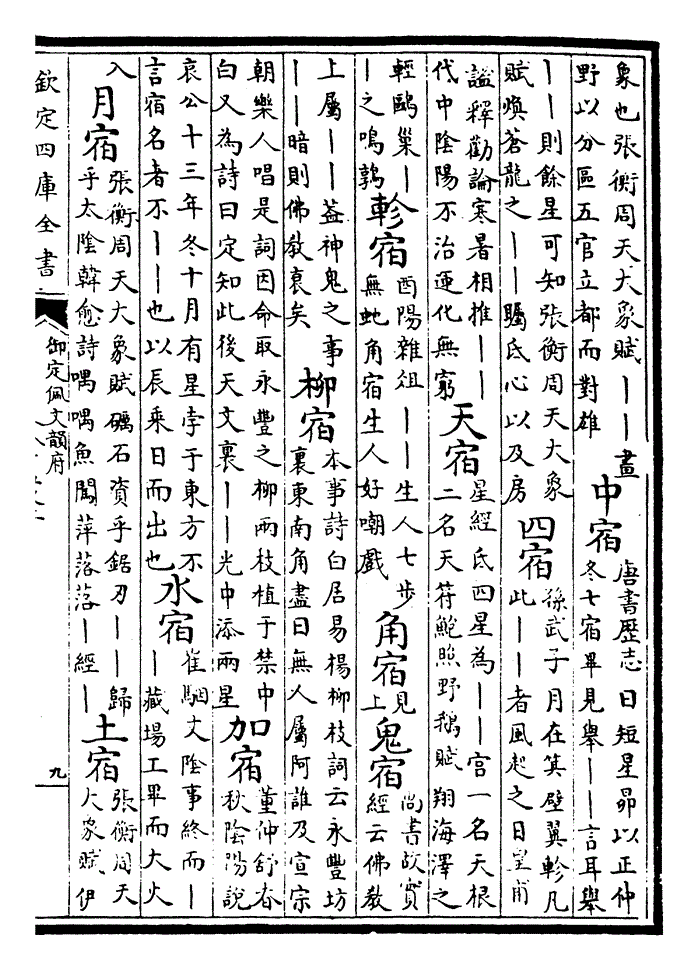 象也張衡周天大象賦｜｜畫
野以分區五官立都而對雄
中宿
唐書歷志日短星昴以正仲
冬七宿畢見舉｜｜言耳舉
｜｜則餘星可知張衡周天大象
賦煥蒼龍之｜｜矚氐心以及房
四宿
孫武子月在箕壁翼軫凡
此｜｜者風起之日皇甫
謐釋勸論寒暑相推｜｜
代中陰陽不治運化無窮
天宿
星經氐四星為｜｜宮一名天根
二名天符鮑照野鵝賦翔海澤之
輕鷗巢｜
｜之鳴鶉
軫宿
酉陽雜俎｜｜生人七步
無虵角宿生人好嘲戲
角宿
見
上
鬼宿
尚書故實
經云佛教
上屬｜｜葢神鬼之事
｜｜暗則佛教衰矣
柳宿
本事詩白居易楊柳枝詞云永豐坊
裏東南角盡日無人屬阿誰及宣宗
朝樂人唱是詞因命取永豐之柳兩枝植于禁中
白又為詩曰定知此後天文裏｜｜光中添兩星
加宿
董仲舒春
秋陰陽說
哀公十三年冬十月有星孛于東方不
言宿名者不｜｜也以辰乘日而出也
水宿
崔駰文陰事終而｜
｜藏場工畢而大火
入
月宿
張衡周天大象賦礪石資乎鋸刃｜｜歸
乎太陰韓愈詩喁喁魚闖萍落落｜經｜
土宿
張衡周天
大象賦伊
欽定四庫全書
御定佩文韻府
九